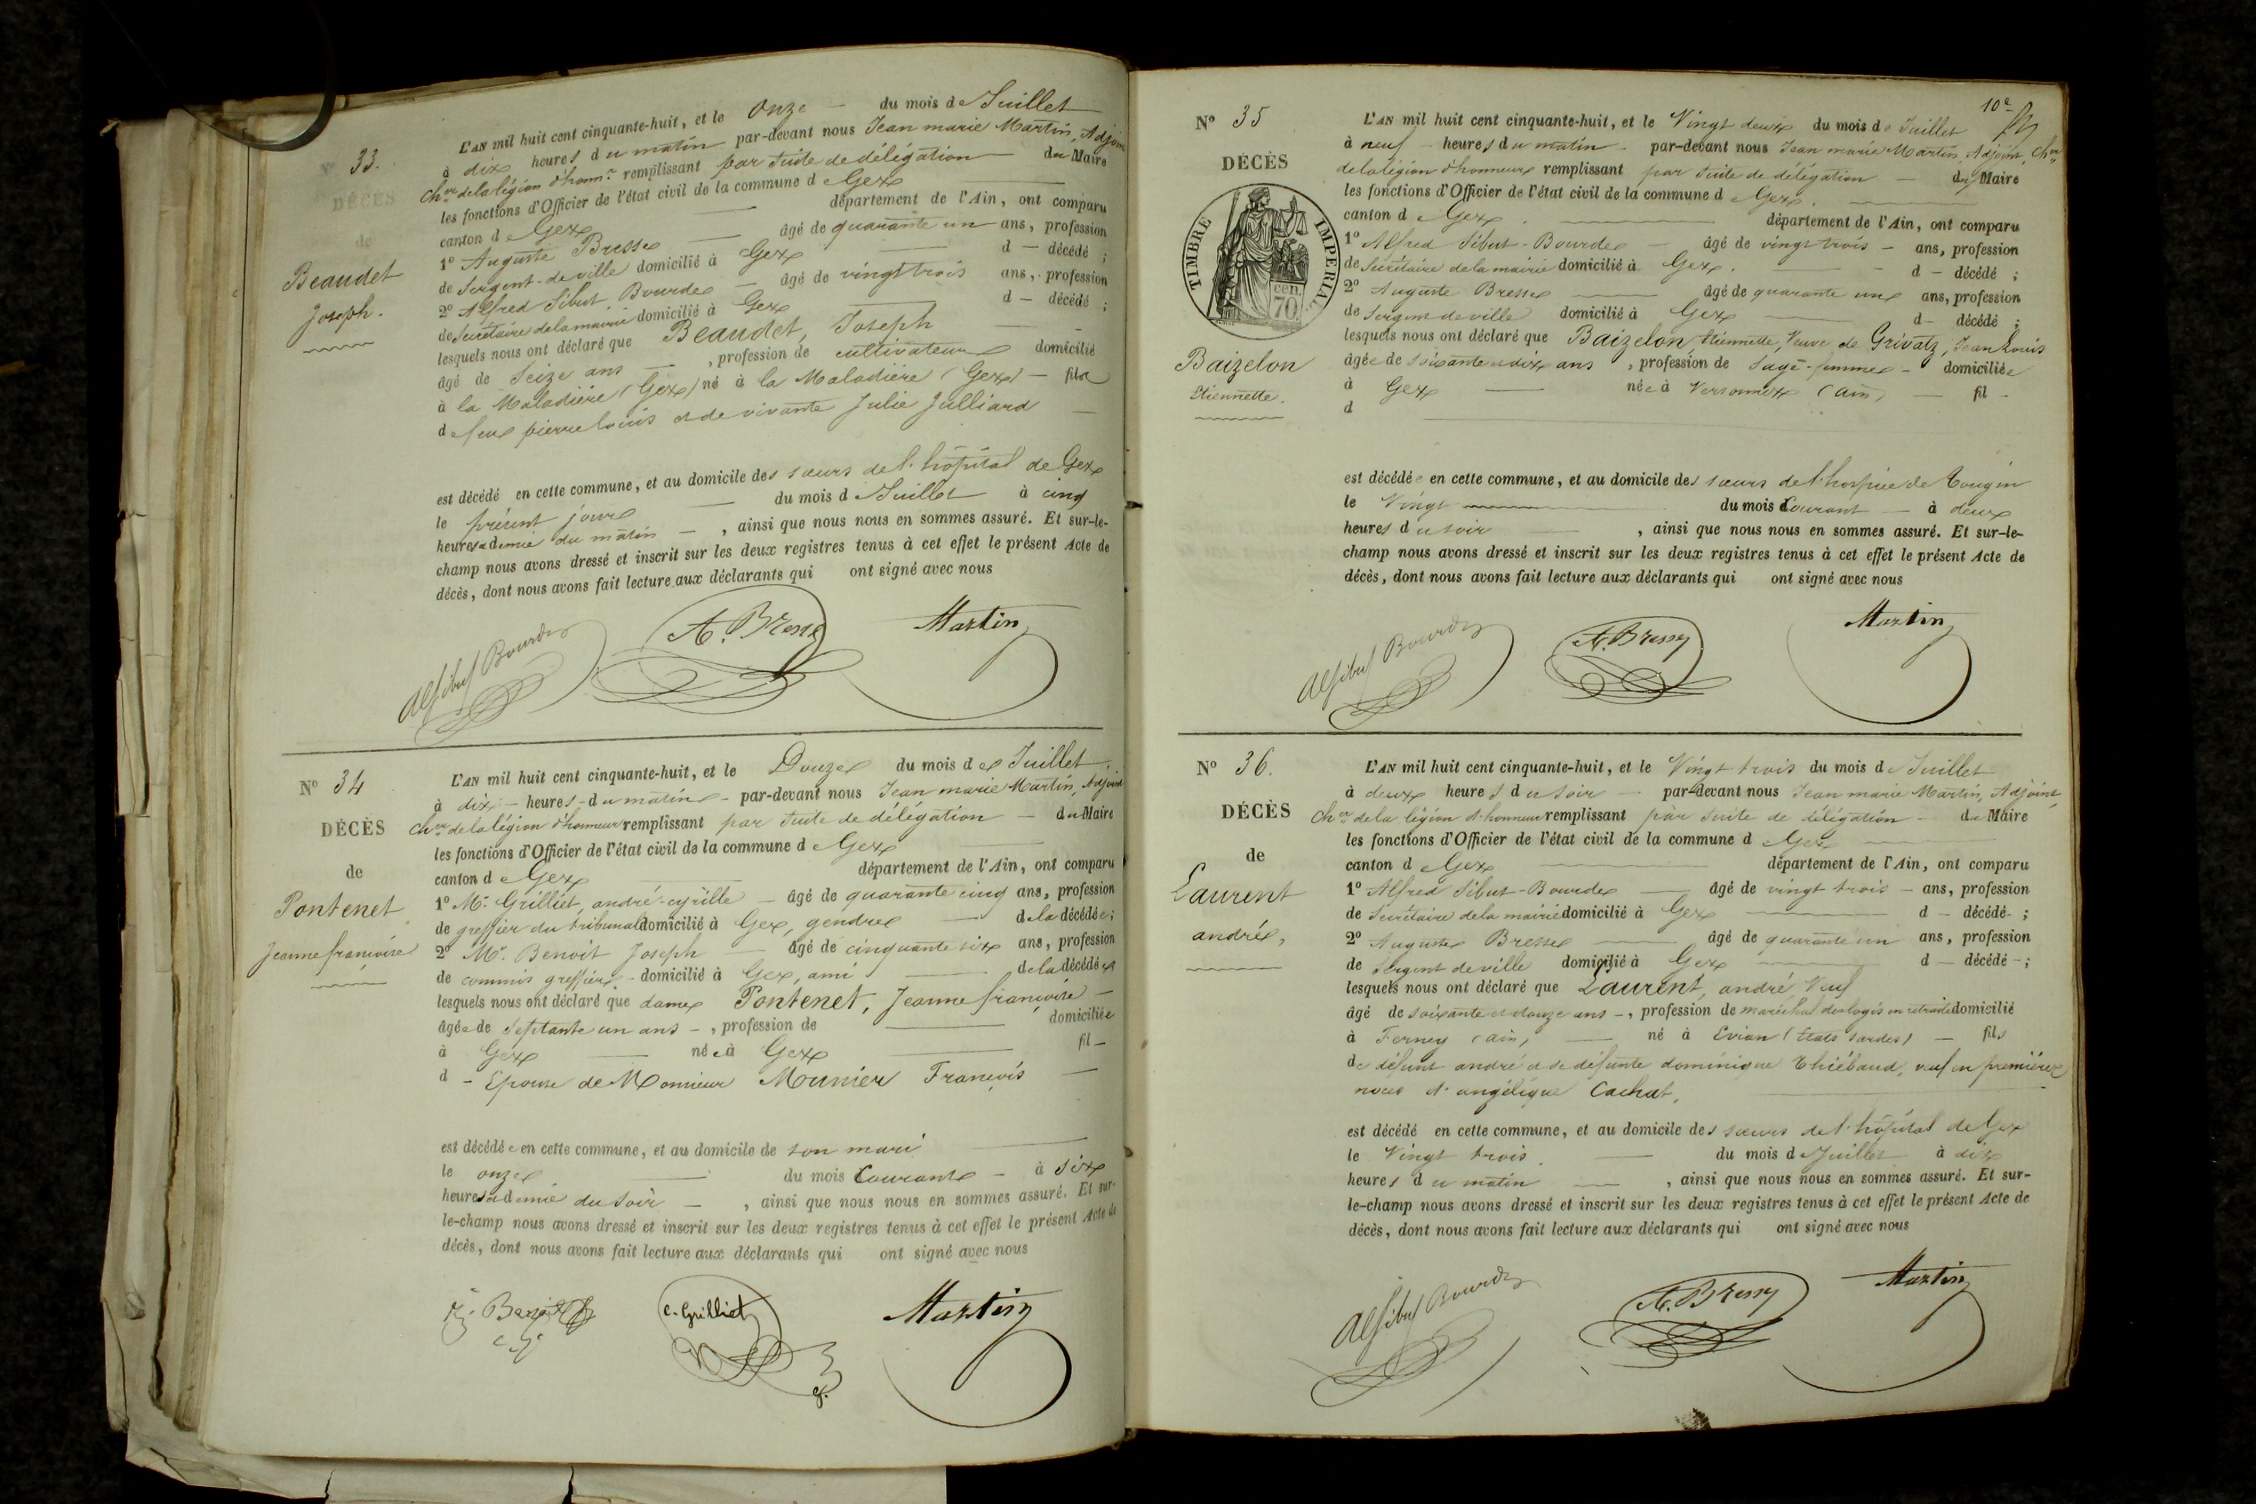 Nº 33.
DÉCÈS
de
Beaudet
Joseph.
L'AN mil huit cent cinquante-huit, et le onze du mois de Juillet
à dix heures du matin par-devant nous Jean marie Martin, Adjoint
Chev. de la légion d'honnr remplissant par suite de délégation du Maire
les fonctions d'Officier de l'état civil de la commune de Gex
canton de Gex département de l'Ain, ont comparu
1º Auguste Bresse âgé de quarante un ans, profession
de Sergent-de ville domicilié à Gex d décédé ;
2º Alfred Sibut-Bourde âgé de vingt trois ans, profession
de Secrétaire de la mairie domicilié à Gex d décédé ;
lesquels nous ont déclaré que Beaudet, Joseph
âgé de Seize ans , profession de cultivateur domicilié
à la Maladière (Gex) né à la Maladière (Gex) fils
de feu pierre louis et de vivante Julie Julliard
est décédé en cette commune, et au domicile des sœurs de l'hôpital de Gex
le présent jour du mois de Juillet à cinq
heures et demie du matin , ainsi que nous nous en sommes assuré. Et sur-le-
champ nous avons dressé et inscrit sur les deux registres tenus à cet effet le présent Acte de
décès, dont nous avons fait lecture aux déclarants qui ont signé avec nous
Al Sibut Bourde A. Bresse Martin
Nº 34
DÉCÈS
de
Pontenet
Jeanne françoise
L'AN mil huit cent cinquante-huit, et le Douze du mois de Juillet.
à dix heures du matin par-devant nous Jean marie Martin, Adjoint
Cher de la légion d'honneur remplissant par suite de délégation du Maire
les fonctions d'Officier de l'état civil de la commune de Gex
canton de Gex département de l'Ain, ont comparu
1º Mr. Grilliet, andré-cyrille âgé de quarante cinq ans, profession
de greffier du tribunal domicilié à Gex, gendre de la décédée ;
2º Mr. Benoit Joseph âgé de cinquante six ans, profession
de commis greffier domicilié à Gex, ami de la décédée
lesquels nous ont déclaré que dame Pontenet, Jeanne françoise
âgée de septante un ans , profession de domiciliée
à Gex née à Gex fil
d Epouse de Monsieur Mounier François
est décédée en cette commune, et au domicile de son mari
le onze du mois Courant à six
heures et demie du soir , ainsi que nous nous en sommes assuré. Et sur-
le-champ nous avons dressé et inscrit sur les deux registres tenus à cet effet le présent Acte de
décès, dont nous avons fait lecture aux déclarants qui ont signé avec nous
Benoit c. Grilliet Martin
10e
Nº 35
DÉCÈS
TIMBRE IMPERIAL
70 cen.
Baizelon
Etiennette.
L'AN mil huit cent cinquante-huit, et le Vingt deux du mois de Juillet
à neuf heures du matin par-devant nous Jean marie Martin, Adjoint, Cher
de la légion d'honneur remplissant par suite de délégation du Maire
les fonctions d'Officier de l'état civil de la commune de Gex.
canton de Gex. département de l'Ain, ont comparu
1º Alfred Sibut-Bourde âgé de vingt trois ans, profession
de Secrétaire de la mairie domicilié à Gex. d décédé ;
2º Auguste Bresse âgé de quarante un ans, profession
de Sergent de ville domicilié à Gex d décédé ;
lesquels nous ont déclaré que Baizelon Etiennette, Veuve de Grivatz, Jean Louis
âgée de soixante et dix ans , profession de sage-femme domiciliée
à Gex née à Versonnex (ain) fil
d
est décédée en cette commune, et au domicile des sœurs de l'hospice de Tougin
le Vingt du mois Courant à deux
heures du soir , ainsi que nous nous en sommes assuré. Et sur-le-
champ nous avons dressé et inscrit sur les deux registres tenus à cet effet le présent Acte de
décès, dont nous avons fait lecture aux déclarants qui ont signé avec nous
Al Sibut Bourde A. Bresse Martin
Nº 36.
DÉCÈS
de
Laurent
andré,
L'AN mil huit cent cinquante-huit, et le Vingt trois du mois de Juillet
à deux heures du soir par-devant nous Jean marie Martin, Adjoint,
Cher de la légion d'honneur remplissant par suite de délégation du Maire
les fonctions d'Officier de l'état civil de la commune de Gex
canton de Gex département de l'Ain, ont comparu
1º Alfred Sibut-Bourde âgé de vingt trois ans, profession
de Secrétaire de la mairie domicilié à Gex d décédé ;
2º Auguste Bresse âgé de quarante un ans, profession
de Sergent de ville domicilié à Gex d décédé ;
lesquels nous ont déclaré que Laurent, andré Veuf
âgé de soixante et douze ans , profession de maréchal des logis en retraite domicilié
à Ferney (ain) né à Evian (Etats sardes) fils
de défunt andré et de défunte dominique Thiébaud, veuf en premières
noces d'angélique Cachat,
est décédé en cette commune, et au domicile des sœurs de l'hôpital de Gex
le Vingt trois du mois de Juillet à dix
heures du matin , ainsi que nous nous en sommes assuré. Et sur-
le-champ nous avons dressé et inscrit sur les deux registres tenus à cet effet le présent Acte de
décès, dont nous avons fait lecture aux déclarants qui ont signé avec nous
Al Sibut Bourde A. Bresse Martin